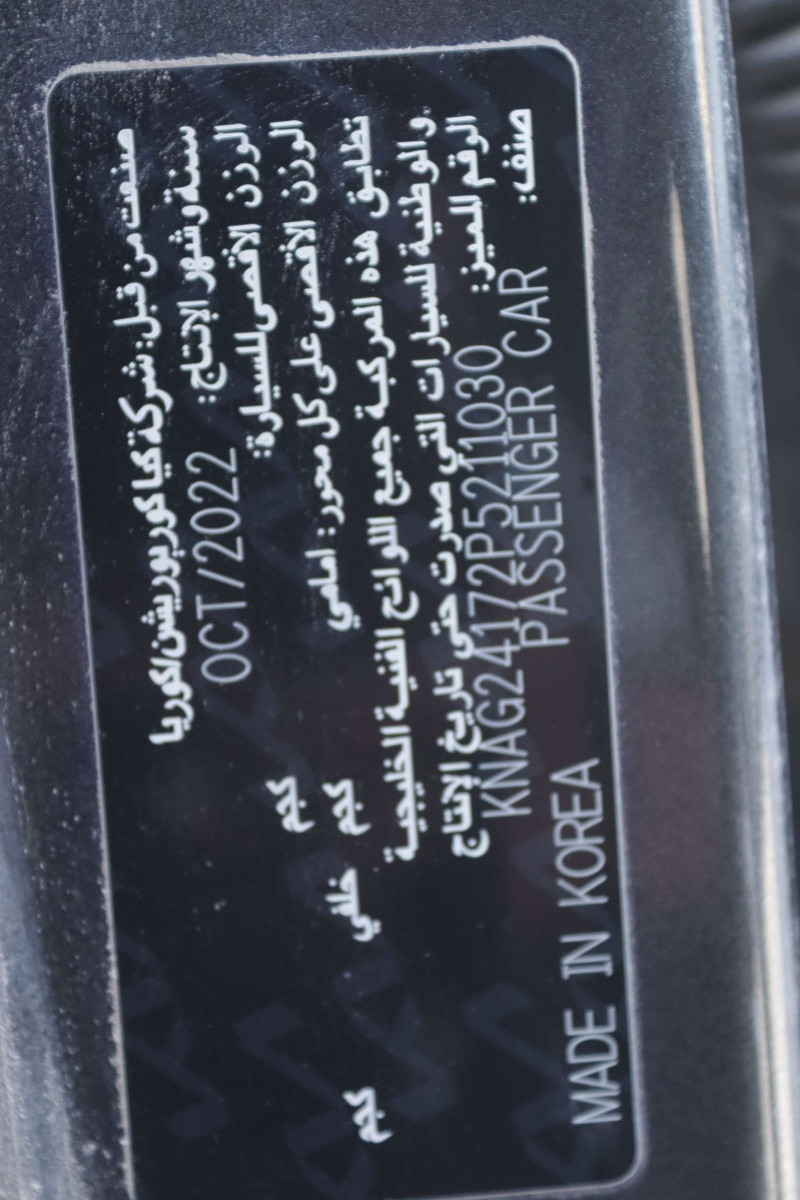 صنعت من قبل: شركة كيا كوربوريشن/كوريا
سنة وشهر الإنتاج: OCT/2022
الوزن الأقصى للسيارة: كجم
الوزن الأقصى على كل محور: امامي كجم خلفي كجم
تطابق هذه المركبة جميع اللوائح الفنية الخليجية
والوطنية للسيارات التي صدرت حتى تاريخ الإنتاج
الرقم المميز: KNAG24172P5211030
صنف: PASSENGER CAR
MADE IN KOREA